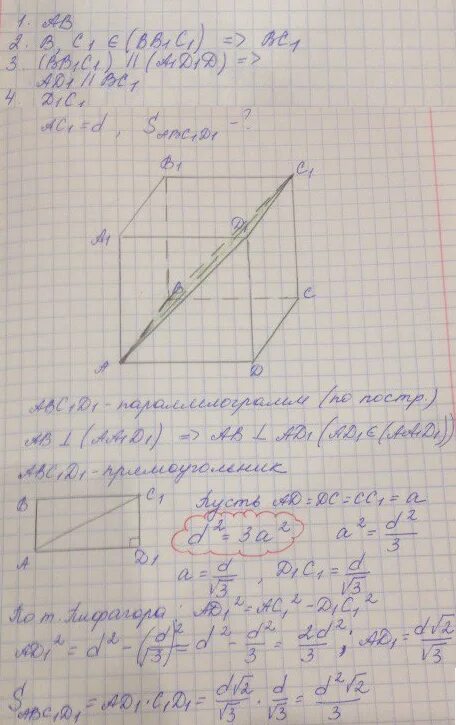 1. AB
2. B, C₁ ∈ (BB₁C₁) => BC₁
3. (BB₁C₁) || (A₁D₁D) =>
AD₁ || BC₁
4. D₁C₁
AC₁ = d, S_ABC₁D₁ - ?
B₁
C₁
A₁
D₁
B
C
A
D
ABC₁D₁ - параллелограмм (по постр.)
AB ⊥ (AA₁D₁) => AB ⊥ AD₁ (AD₁ ∈ (AA₁D₁))
ABC₁D₁ - прямоугольник
B
C₁
A
D₁
Пусть AD = DC = CC₁ = a
d² = 3a²
a² = d²/3
a = d/√3, D₁C₁ = d/√3
По т. Пифагора: AD₁² = AC₁² - D₁C₁²
AD₁² = d² - (d/√3)² = d² - d²/3 = 2d²/3; AD₁ = d√2/√3
S_ABC₁D₁ = AD₁ · C₁D₁ = d√2/√3 · d/√3 = d²√2/3